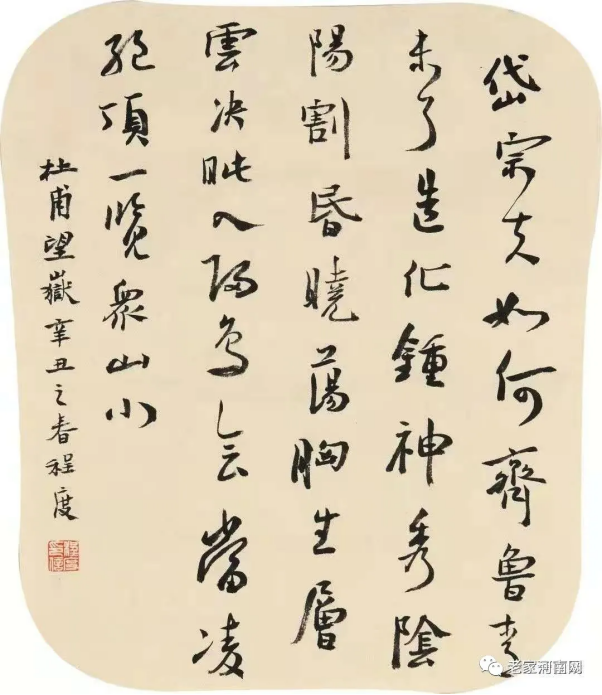 岱宗夫如何齊魯青
未了造化鍾神秀陰
陽割昏曉蕩胸生層
雲決眦入歸鳥會當凌
絕頂一覽衆山小
杜甫望嶽辛丑之春程度
老家河南网